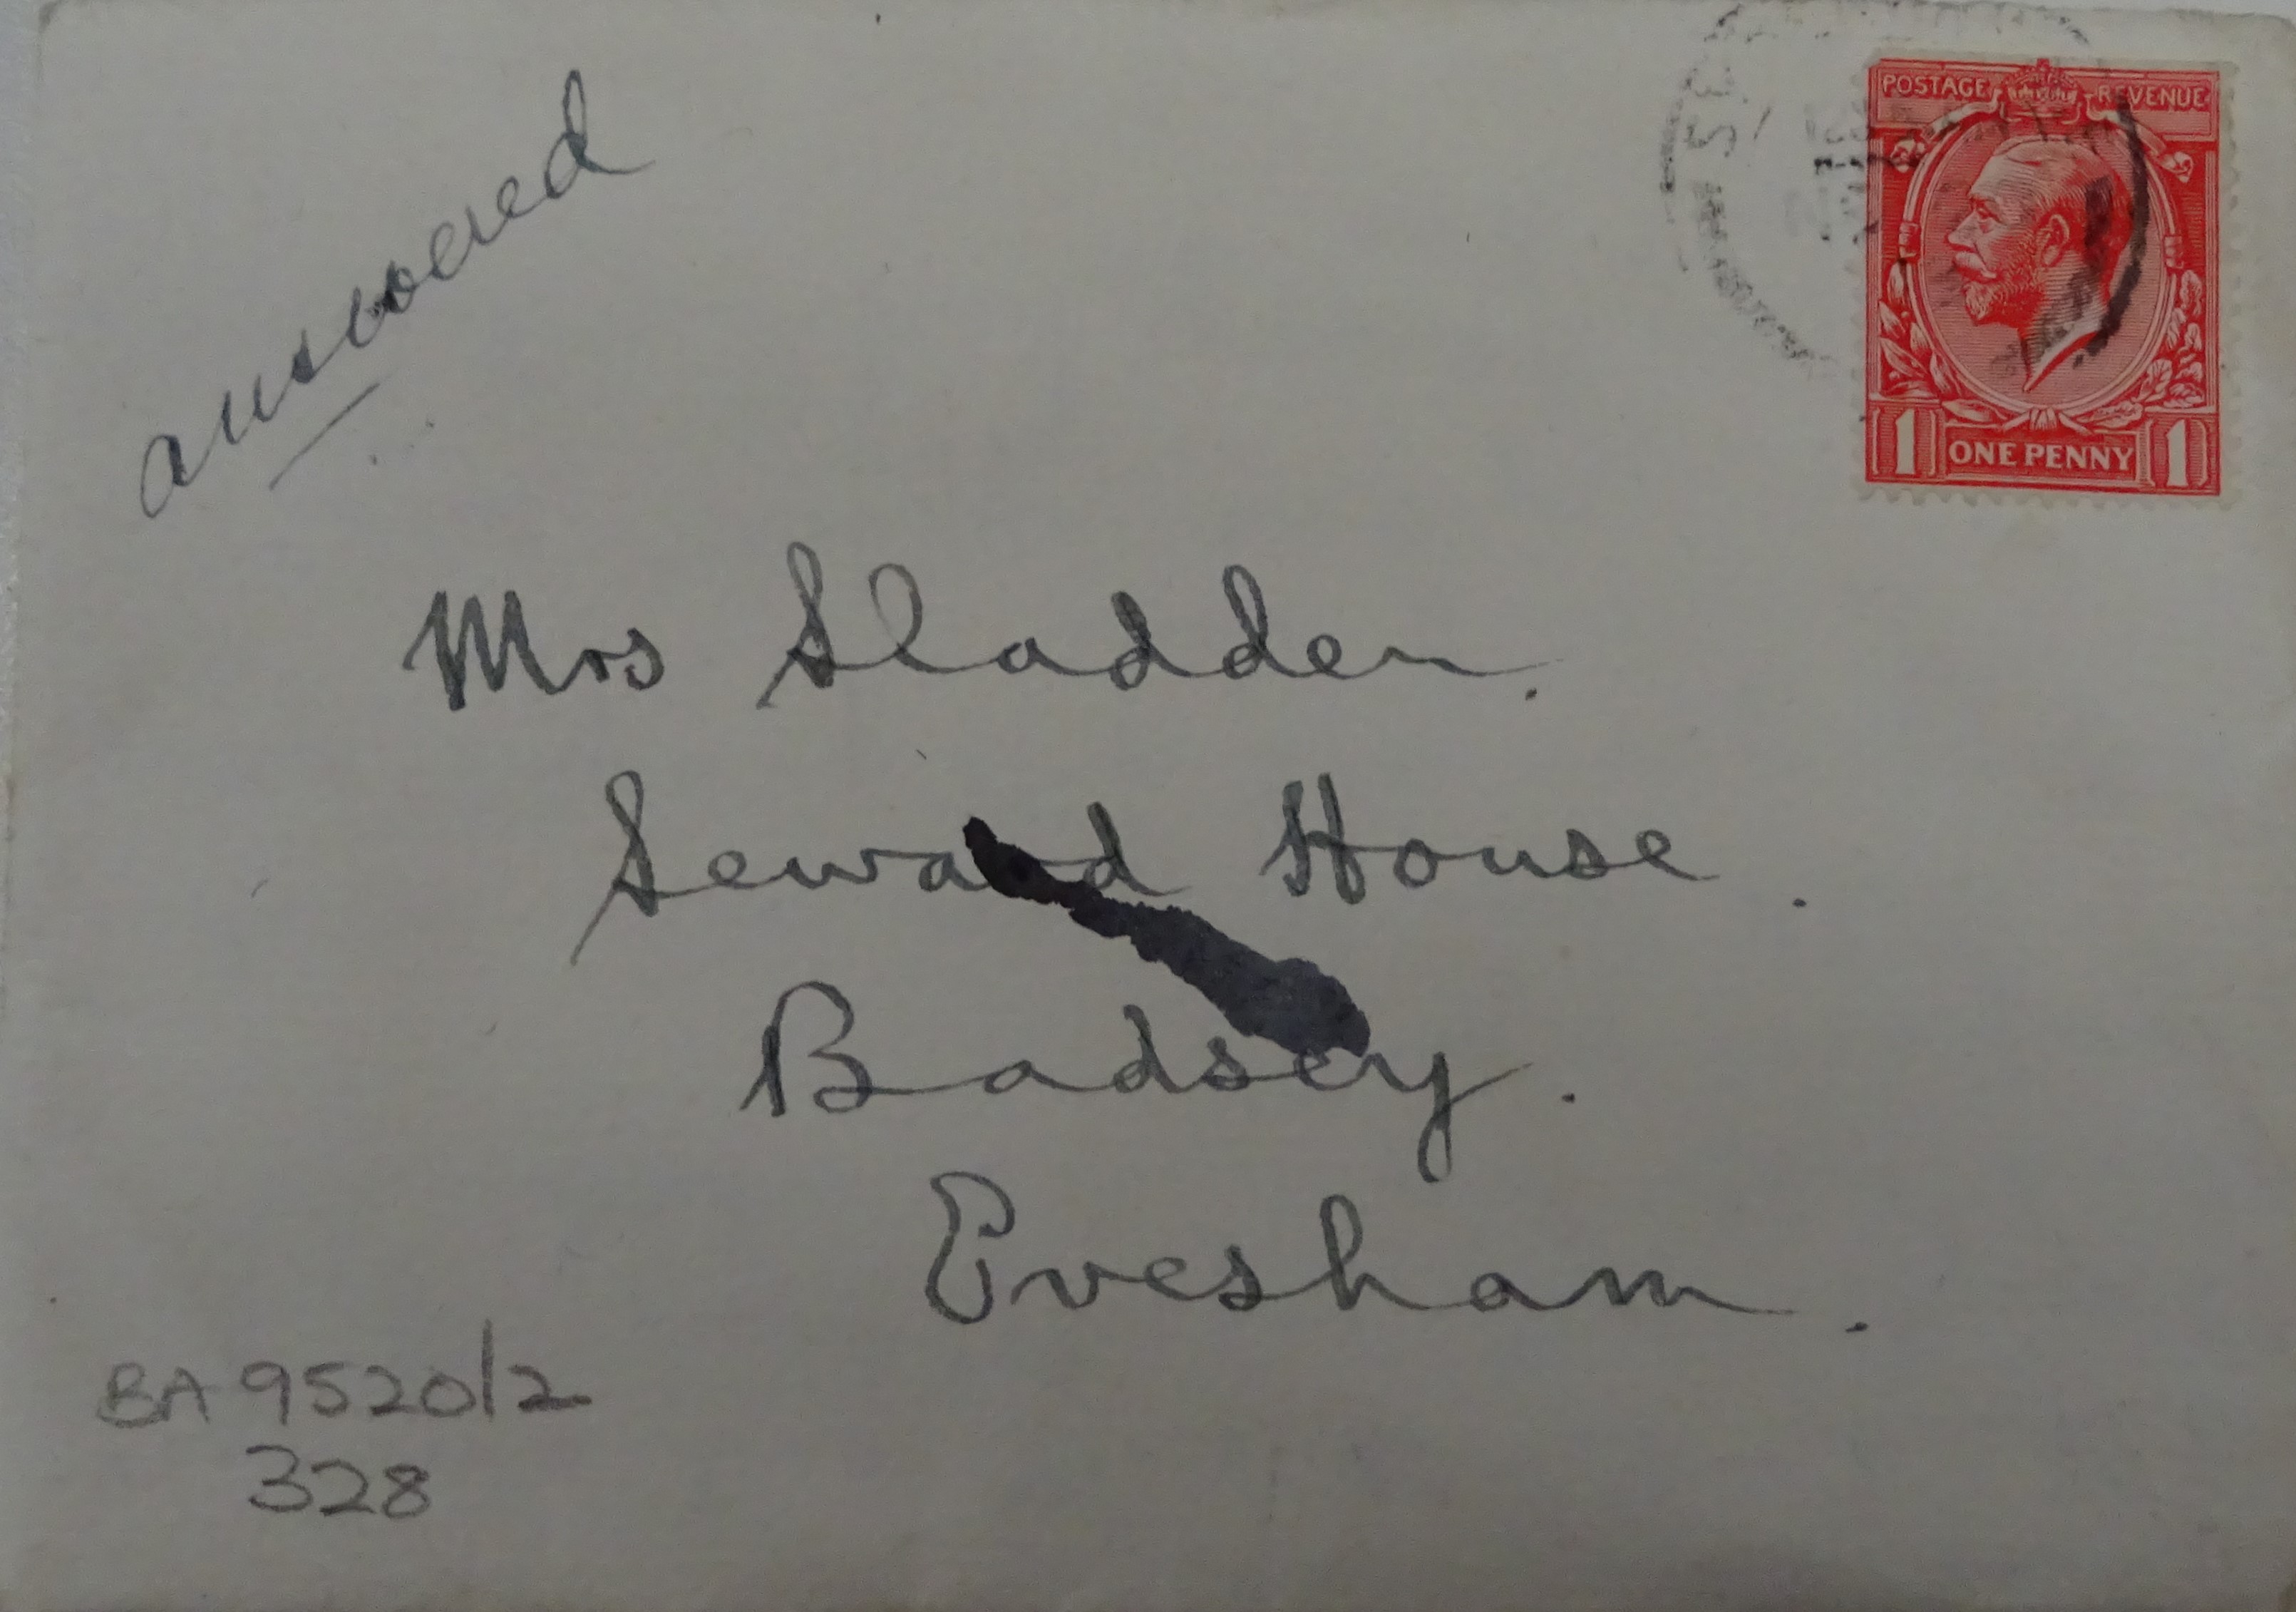 answered
POSTAGE REVENUE
1 ONE PENNY 1
Mrs Sladden.
Seward House.
Badsey.
Evesham.
BA 9520/2
328